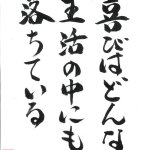 喜びは、どんな
生活の中にも
落ちている